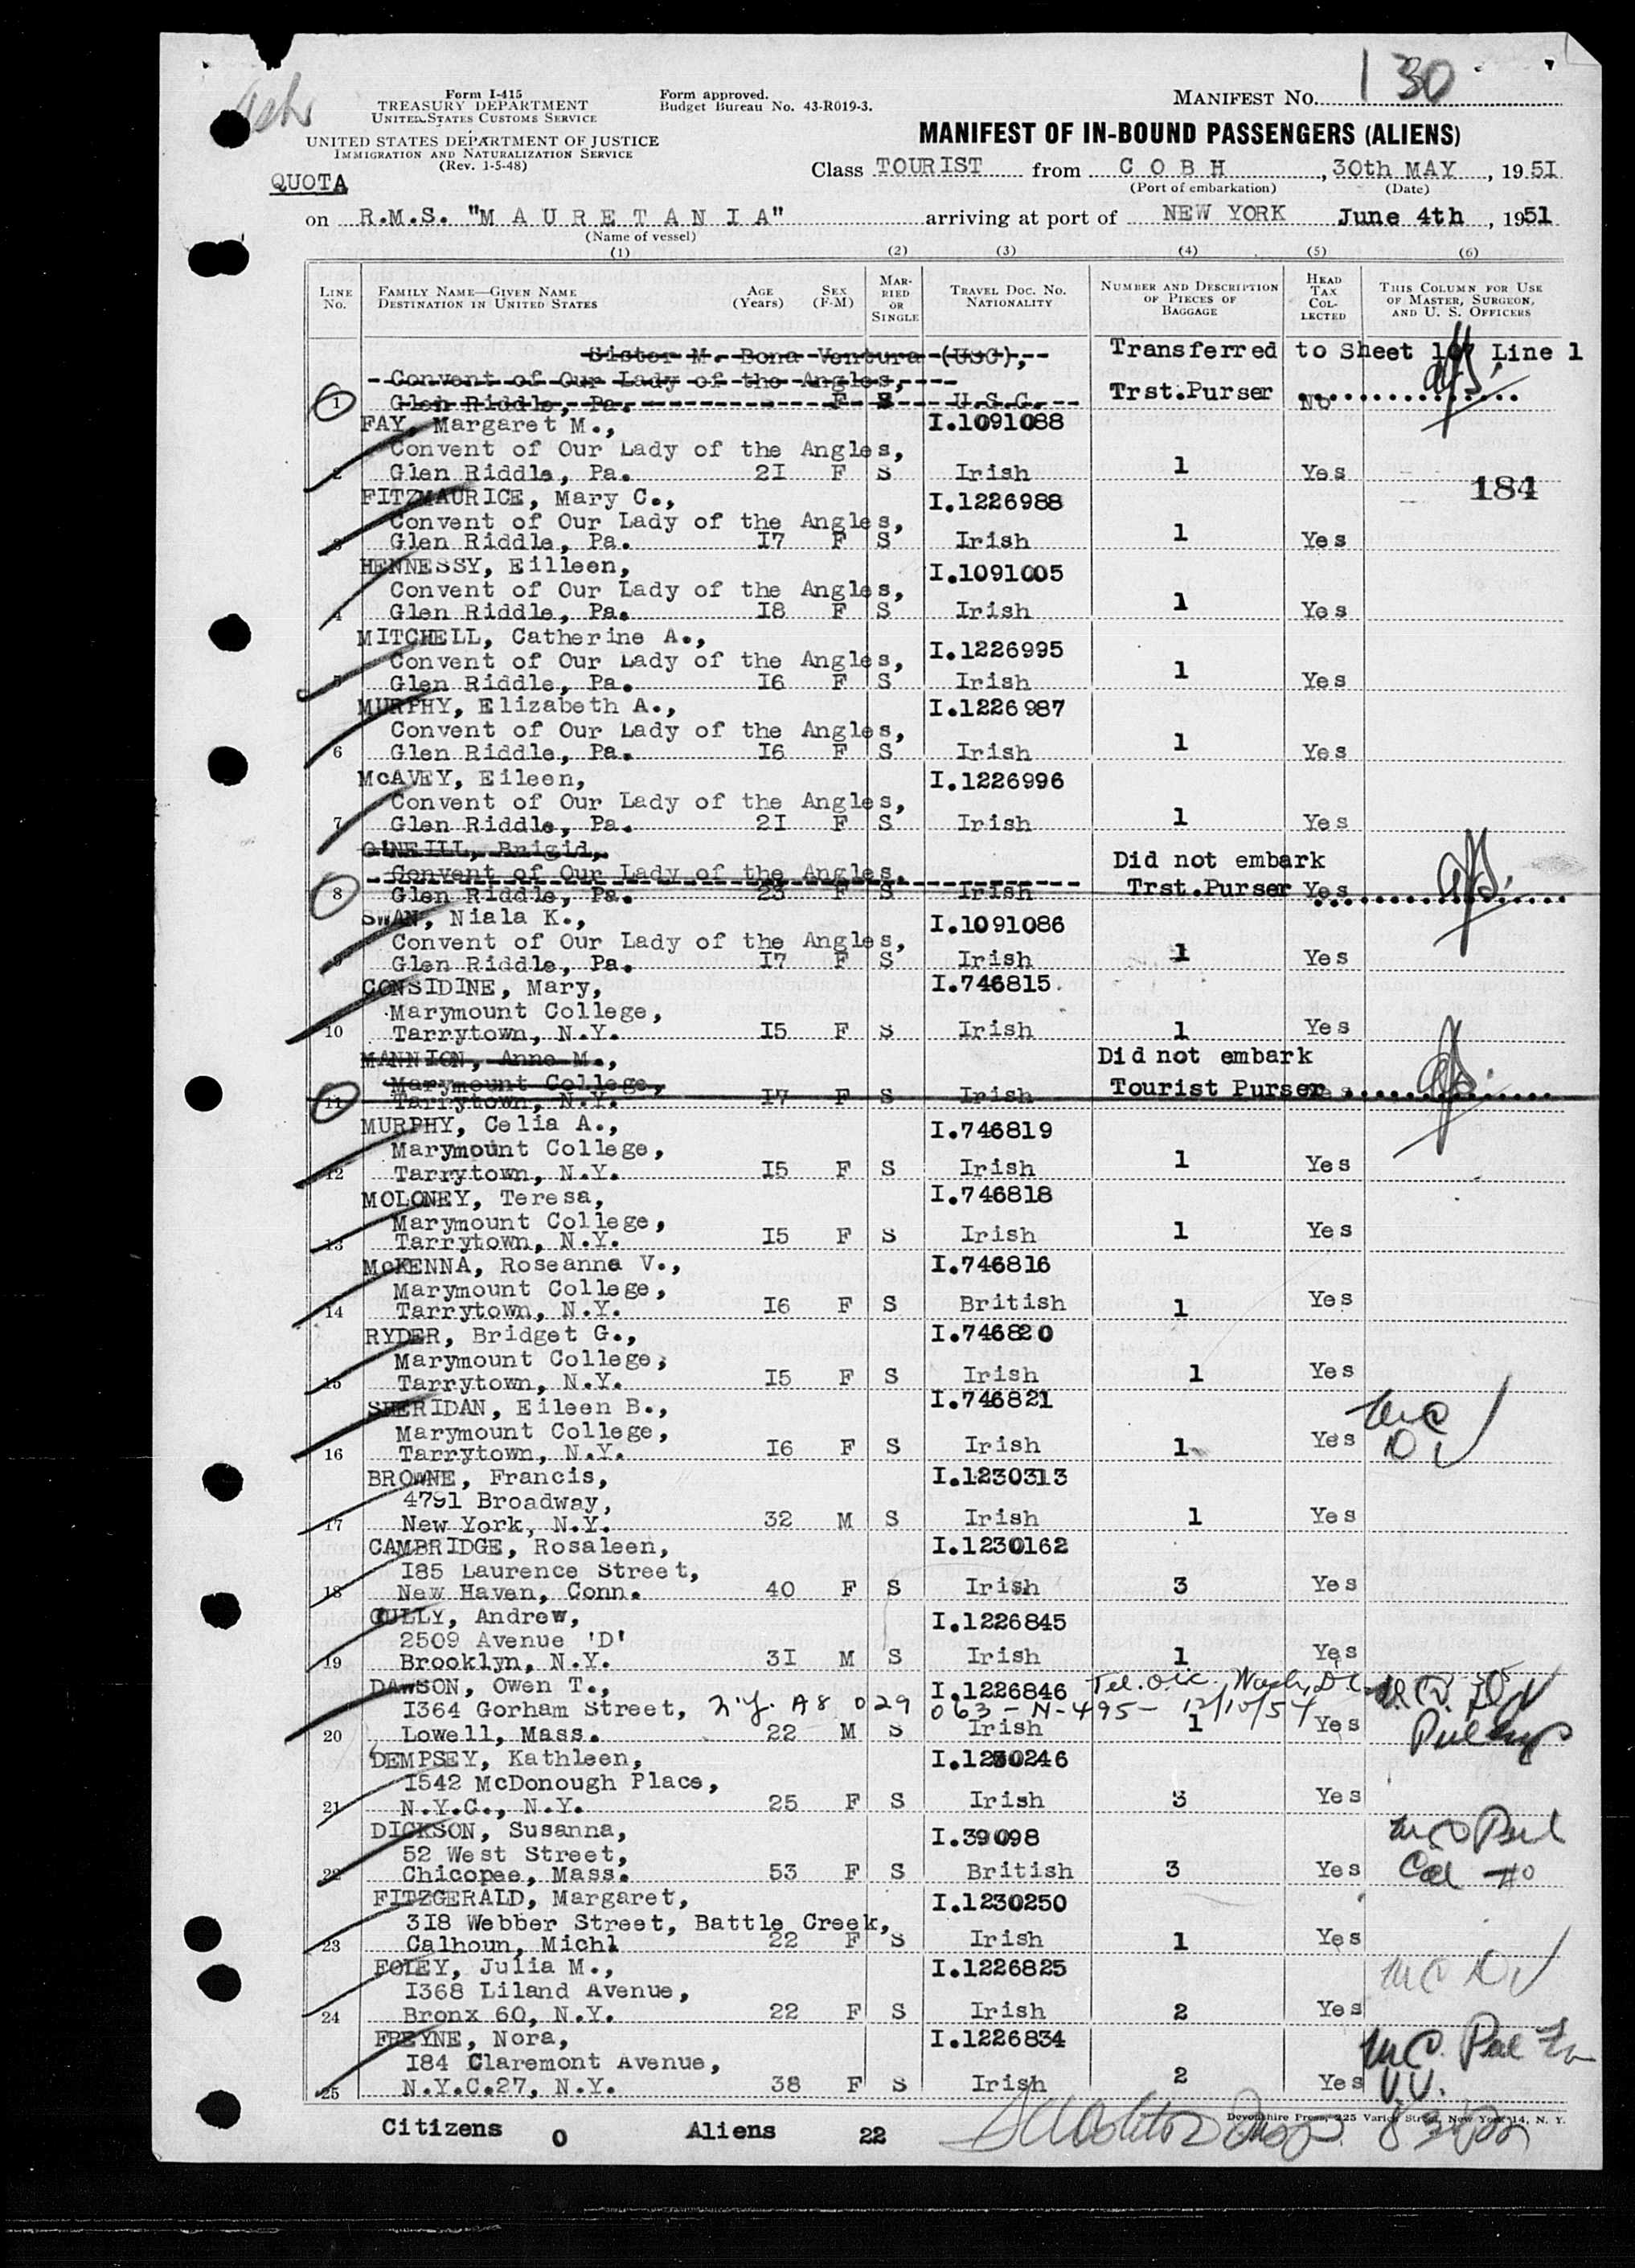 130
Form I-415
TREASURY DEPARTMENT
UNITED STATES CUSTOMS SERVICE
UNITED STATES DEPARTMENT OF JUSTICE
IMMIGRATION AND NATURALIZATION SERVICE
(Rev. 1-5-48)
Form approved.
Budget Bureau No. 43-R019-3.
MANIFEST NO.
MANIFEST OF IN-BOUND PASSENGERS (ALIENS)
QUOTA
Class TOURIST from C O B H, 30th MAY, 1951
(Port of embarkation) (Date)
on R.M.S. "M A U R E T A N I A" arriving at port of NEW YORK June 4th, 1951
(Name of vessel)
(1) (2) (3) (4) (5) (6)
LINE NO.
FAMILY NAME—GIVEN NAME
DESTINATION IN UNITED STATES
AGE (Years)
SEX (F-M)
MARRIED OR SINGLE
TRAVEL DOC. NO.
NATIONALITY
NUMBER AND DESCRIPTION OF PIECES OF BAGGAGE
HEAD TAX COLLECTED
THIS COLUMN FOR USE OF MASTER, SURGEON, AND U. S. OFFICERS
Sister M. Bona Ventura (USC), Transferred to Sheet Line 1
Convent of Our Lady of the Angles,
1 Glen Riddle, Pa. F S U.S.C. Trst.Purser No
FAY, Margaret M., I.1091088
Convent of Our Lady of the Angles,
2 Glen Riddle, Pa. 2I F S Irish 1 Yes
184
FITZMAURICE, Mary C., I.1226988
Convent of Our Lady of the Angles,
3 Glen Riddle, Pa. I7 F S Irish 1 Yes
HENNESSY, Eilleen, I.1091005
Convent of Our Lady of the Angles,
4 Glen Riddle, Pa. I8 F S Irish 1 Yes
MITCHELL, Catherine A., I.1226995
Convent of Our Lady of the Angles,
5 Glen Riddle, Pa. I6 F S Irish 1 Yes
MURPHY, Elizabeth A., I.1226987
Convent of Our Lady of the Angles,
6 Glen Riddle, Pa. I6 F S Irish 1 Yes
McAVEY, Eileen, I.1226996
Convent of Our Lady of the Angles,
7 Glen Riddle, Pa. 2I F S Irish 1 Yes
O'NEILL, Brigid, Did not embark
Convent of Our Lady of the Angles,
8 Glen Riddle, Pa. 23 F S Irish Trst.Purser Yes
SWAN, Niala K., I.1091086
Convent of Our Lady of the Angles,
9 Glen Riddle, Pa. I7 F S Irish 1 Yes
CONSIDINE, Mary, I.746815
Marymount College,
10 Tarrytown, N.Y. I5 F S Irish 1 Yes
MANNION, Anne M., Did not embark
Marymount College,
11 Tarrytown, N.Y. I7 F S Irish Tourist Purser
MURPHY, Celia A., I.746819
Marymount College,
12 Tarrytown, N.Y. I5 F S Irish 1 Yes
MOLONEY, Teresa, I.746818
Marymount College,
13 Tarrytown, N.Y. I5 F S Irish 1 Yes
McKENNA, Roseanna V., I.746816
Marymount College,
14 Tarrytown, N.Y. I6 F S British 1 Yes
RYDER, Bridget G., I.746820
Marymount College,
15 Tarrytown, N.Y. I5 F S Irish 1 Yes
SHERIDAN, Eileen B., I.746821
Marymount College,
16 Tarrytown, N.Y. I6 F S Irish 1 Yes
BROWNE, Francis, I.1230313
4791 Broadway,
17 New York, N.Y. 32 M S Irish 1 Yes
CAMBRIDGE, Rosaleen, I.1230162
I85 Laurence Street,
18 New Haven, Conn. 40 F S Irish 3 Yes
CULLY, Andrew, I.1226845
2509 Avenue 'D'
19 Brooklyn, N.Y. 3I M S Irish 1 Yes
DAWSON, Owen T., I.1226846 Tel. Wash, D.C.
I364 Gorham Street, N.Y. A8 029 063 - N-495- 12/10/54
20 Lowell, Mass. 22 M S Irish 1 Yes
DEMPSEY, Kathleen, I.1230246
I542 McDonough Place,
21 N.Y.C., N.Y. 25 F S Irish 3 Yes
DICKSON, Susanna, I.39098
52 West Street,
22 Chicopee, Mass. 53 F S British 3 Yes
FITZGERALD, Margaret, I.1230250
3I8 Webber Street, Battle Creek,
23 Calhoun, Michl 22 F S Irish 1 Yes
FOLEY, Julia M., I.1226825
I368 Liland Avenue,
24 Bronx 60, N.Y. 22 F S Irish 2 Yes
FREYNE, Nora, I.1226834
I84 Claremont Avenue,
25 N.Y.C.27, N.Y. 38 F S Irish 2 Yes
Devonshire Press, 225 Varick Street, New York 14, N. Y.
Citizens 0 Aliens 22